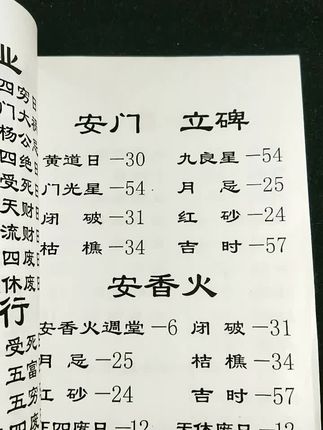 业
四穷日
门大
杨公
四绝
受死日
天财日
流财日
四废日
休废日
行
受死
五富
五穷
安门 立碑
黄道日—30 九良星—54
门光星—54 月忌—25
闭破—31 红砂—24
枯樵—34 吉时—57
安香火
安香火週堂—6 闭破—31
月忌—25 枯樵—34
红砂—24 吉时—57
正四废日—12 天休废日—12